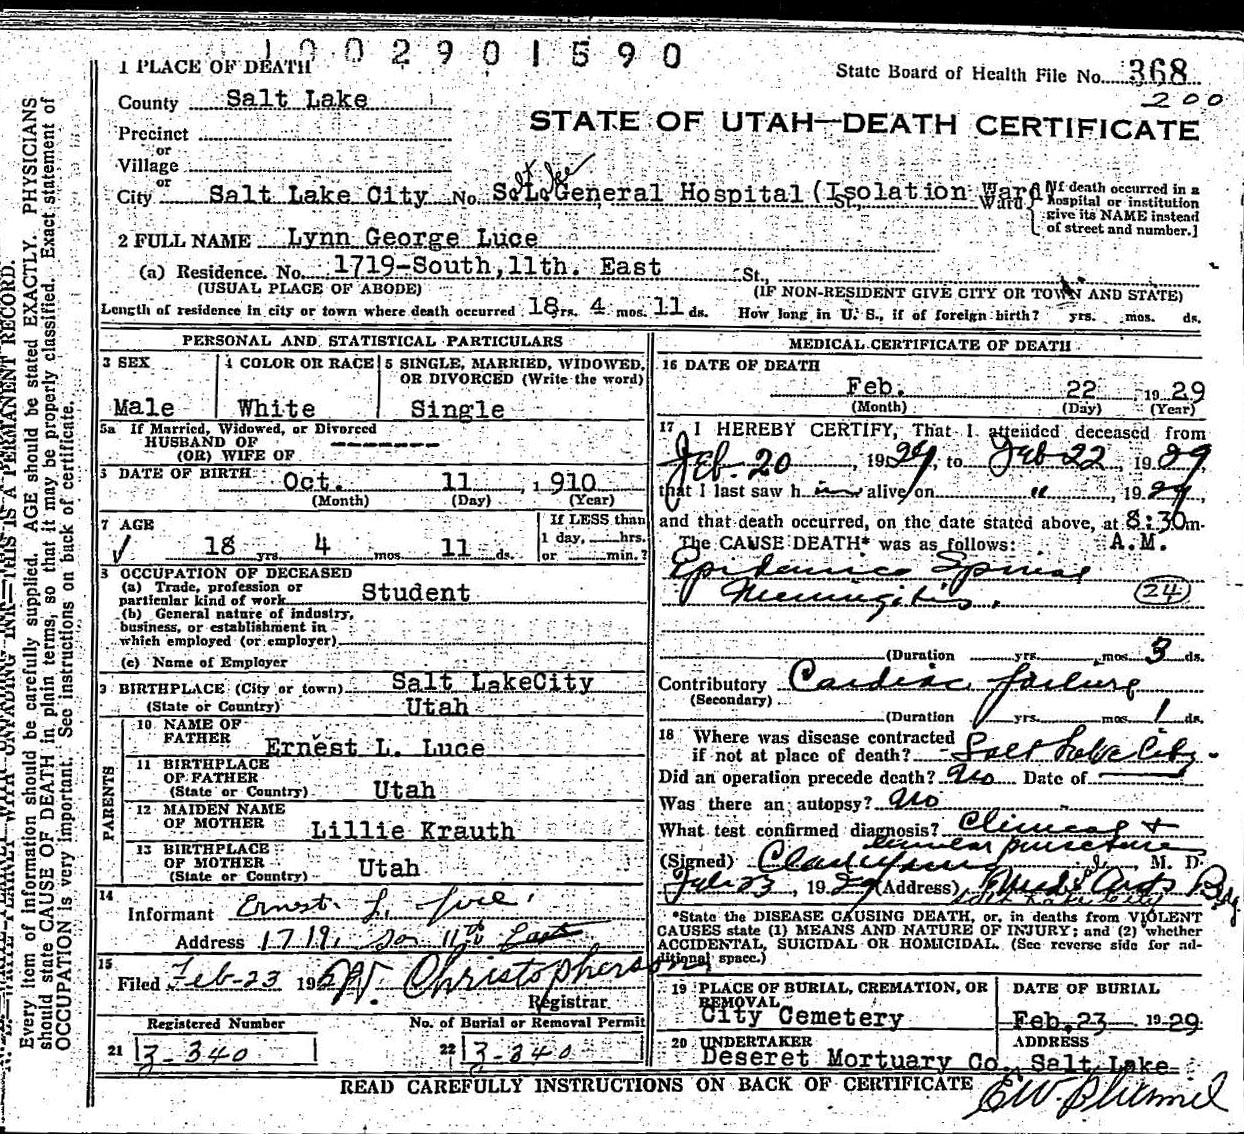 1002901590
1 PLACE OF DEATH
State Board of Health File No. 368
200
County Salt Lake
STATE OF UTAH—DEATH CERTIFICATE
Precinct
or
Village
or
City Salt Lake City No. S.L. General Hospital (Isolation Ward St., Ward
Salt Lake
[If death occurred in a
hospital or institution
give its NAME instead
of street and number.]
2 FULL NAME Lynn George Luce
(a) Residence. No. 1719-South, 11th. East St.,
(USUAL PLACE OF ABODE) (IF NON-RESIDENT GIVE CITY OR TOWN AND STATE)
Length of residence in city or town where death occurred 18 yrs. 4 mos. 11 ds. How long in U. S., if of foreign birth? yrs. mos. ds.
PERSONAL AND STATISTICAL PARTICULARS
3 SEX 4 COLOR OR RACE 5 SINGLE, MARRIED, WIDOWED,
OR DIVORCED (Write the word)
Male White Single
5a If Married, Widowed, or Divorced
HUSBAND OF
(OR) WIFE OF
6 DATE OF BIRTH Oct. 11 1910
(Month) (Day) (Year)
7 AGE If LESS than
1 day, hrs.
18 yrs. 4 mos. 11 ds. or min.?
8 OCCUPATION OF DECEASED
(a) Trade, profession or
particular kind of work Student
(b) General nature of industry,
business, or establishment in
which employed (or employer)
(c) Name of Employer
9 BIRTHPLACE (City or town) Salt LakeCity
(State or Country) Utah
PARENTS
10 NAME OF
FATHER Ernest L. Luce
11 BIRTHPLACE
OF FATHER
(State or Country) Utah
12 MAIDEN NAME
OF MOTHER Lillie Krauth
13 BIRTHPLACE
OF MOTHER
(State or Country) Utah
14
Informant Ernest L. Luce
Address 1719, So 11th East
15
Filed Feb-23 19 W. Christopherson
Registrar
Registered Number No. of Burial or Removal Permit
21 3-340 22 3-340
MEDICAL CERTIFICATE OF DEATH
16 DATE OF DEATH
Feb. 22 1929
(Month) (Day) (Year)
17 I HEREBY CERTIFY, That I attended deceased from
Feb-20, 1929, to Feb 22, 1929,
that I last saw him alive on " , 1929,
and that death occurred, on the date stated above, at 8:30 m.
The CAUSE DEATH* was as follows: A.M.
Epidemic Spinal
Meningitis. (24)
(Duration yrs. mos. 3 ds.
Contributory Cardiac failure
(Secondary)
(Duration yrs. mos. 1 ds.
18 Where was disease contracted
if not at place of death? Salt Lake City
Did an operation precede death? No Date of
Was there an autopsy? No
What test confirmed diagnosis? Clinical +
lumbar puncture
(Signed) M. D.
Feb 23, 1929 (Address) Medic Arts Bldg
Salt Lake City
*State the DISEASE CAUSING DEATH, or, in deaths from VIOLENT
CAUSES state (1) MEANS AND NATURE OF INJURY; and (2) whether
ACCIDENTAL, SUICIDAL OR HOMICIDAL. (See reverse side for ad-
ditional space.)
19 PLACE OF BURIAL, CREMATION, OR
REMOVAL DATE OF BURIAL
City Cemetery Feb. 23 1929
20 UNDERTAKER ADDRESS
Deseret Mortuary Co. Salt Lake
READ CAREFULLY INSTRUCTIONS ON BACK OF CERTIFICATE
Every item of information should be carefully supplied. AGE should be stated EXACTLY. PHYSICIANS
should state CAUSE OF DEATH in plain terms, so that it may be properly classified. Exact statement of
OCCUPATION is very important. See instructions on back of certificate.
WRITE PLAINLY WITH UNFADING INK—THIS IS A PERMANENT RECORD.